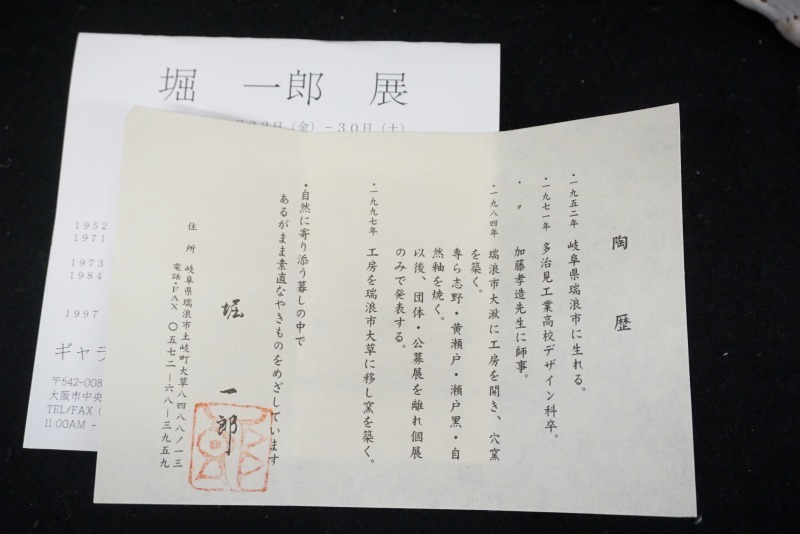 堀 一郎 展
日(金)-30日(土)
1952
1971
1973
1984
1997
ギャラ
〒542-008
大阪市中央
TEL/FAX
11:00AM -
陶 歴
・一九五二年 岐阜県瑞浪市に生れる。
・一九七一年 多治見工業高校デザイン科卒。
・ 〃 加藤孝造先生に師事。
・一九八四年 瑞浪市大湫に工房を開き、穴窯
を築く。
専ら志野・黄瀬戸・瀬戸黒・自
然釉を焼く。
以後、団体・公募展を離れ個展
のみで発表する。
・一九九七年 工房を瑞浪市大草に移し窯を築く。
・自然に寄り添う暮しの中で
あるがまま素直なやきものをめざしています
堀 一郎
住 所 岐阜県瑞浪市土岐町大草八四八八ノ一三
電話・FAX 〇五七二ー六八ー三九五九